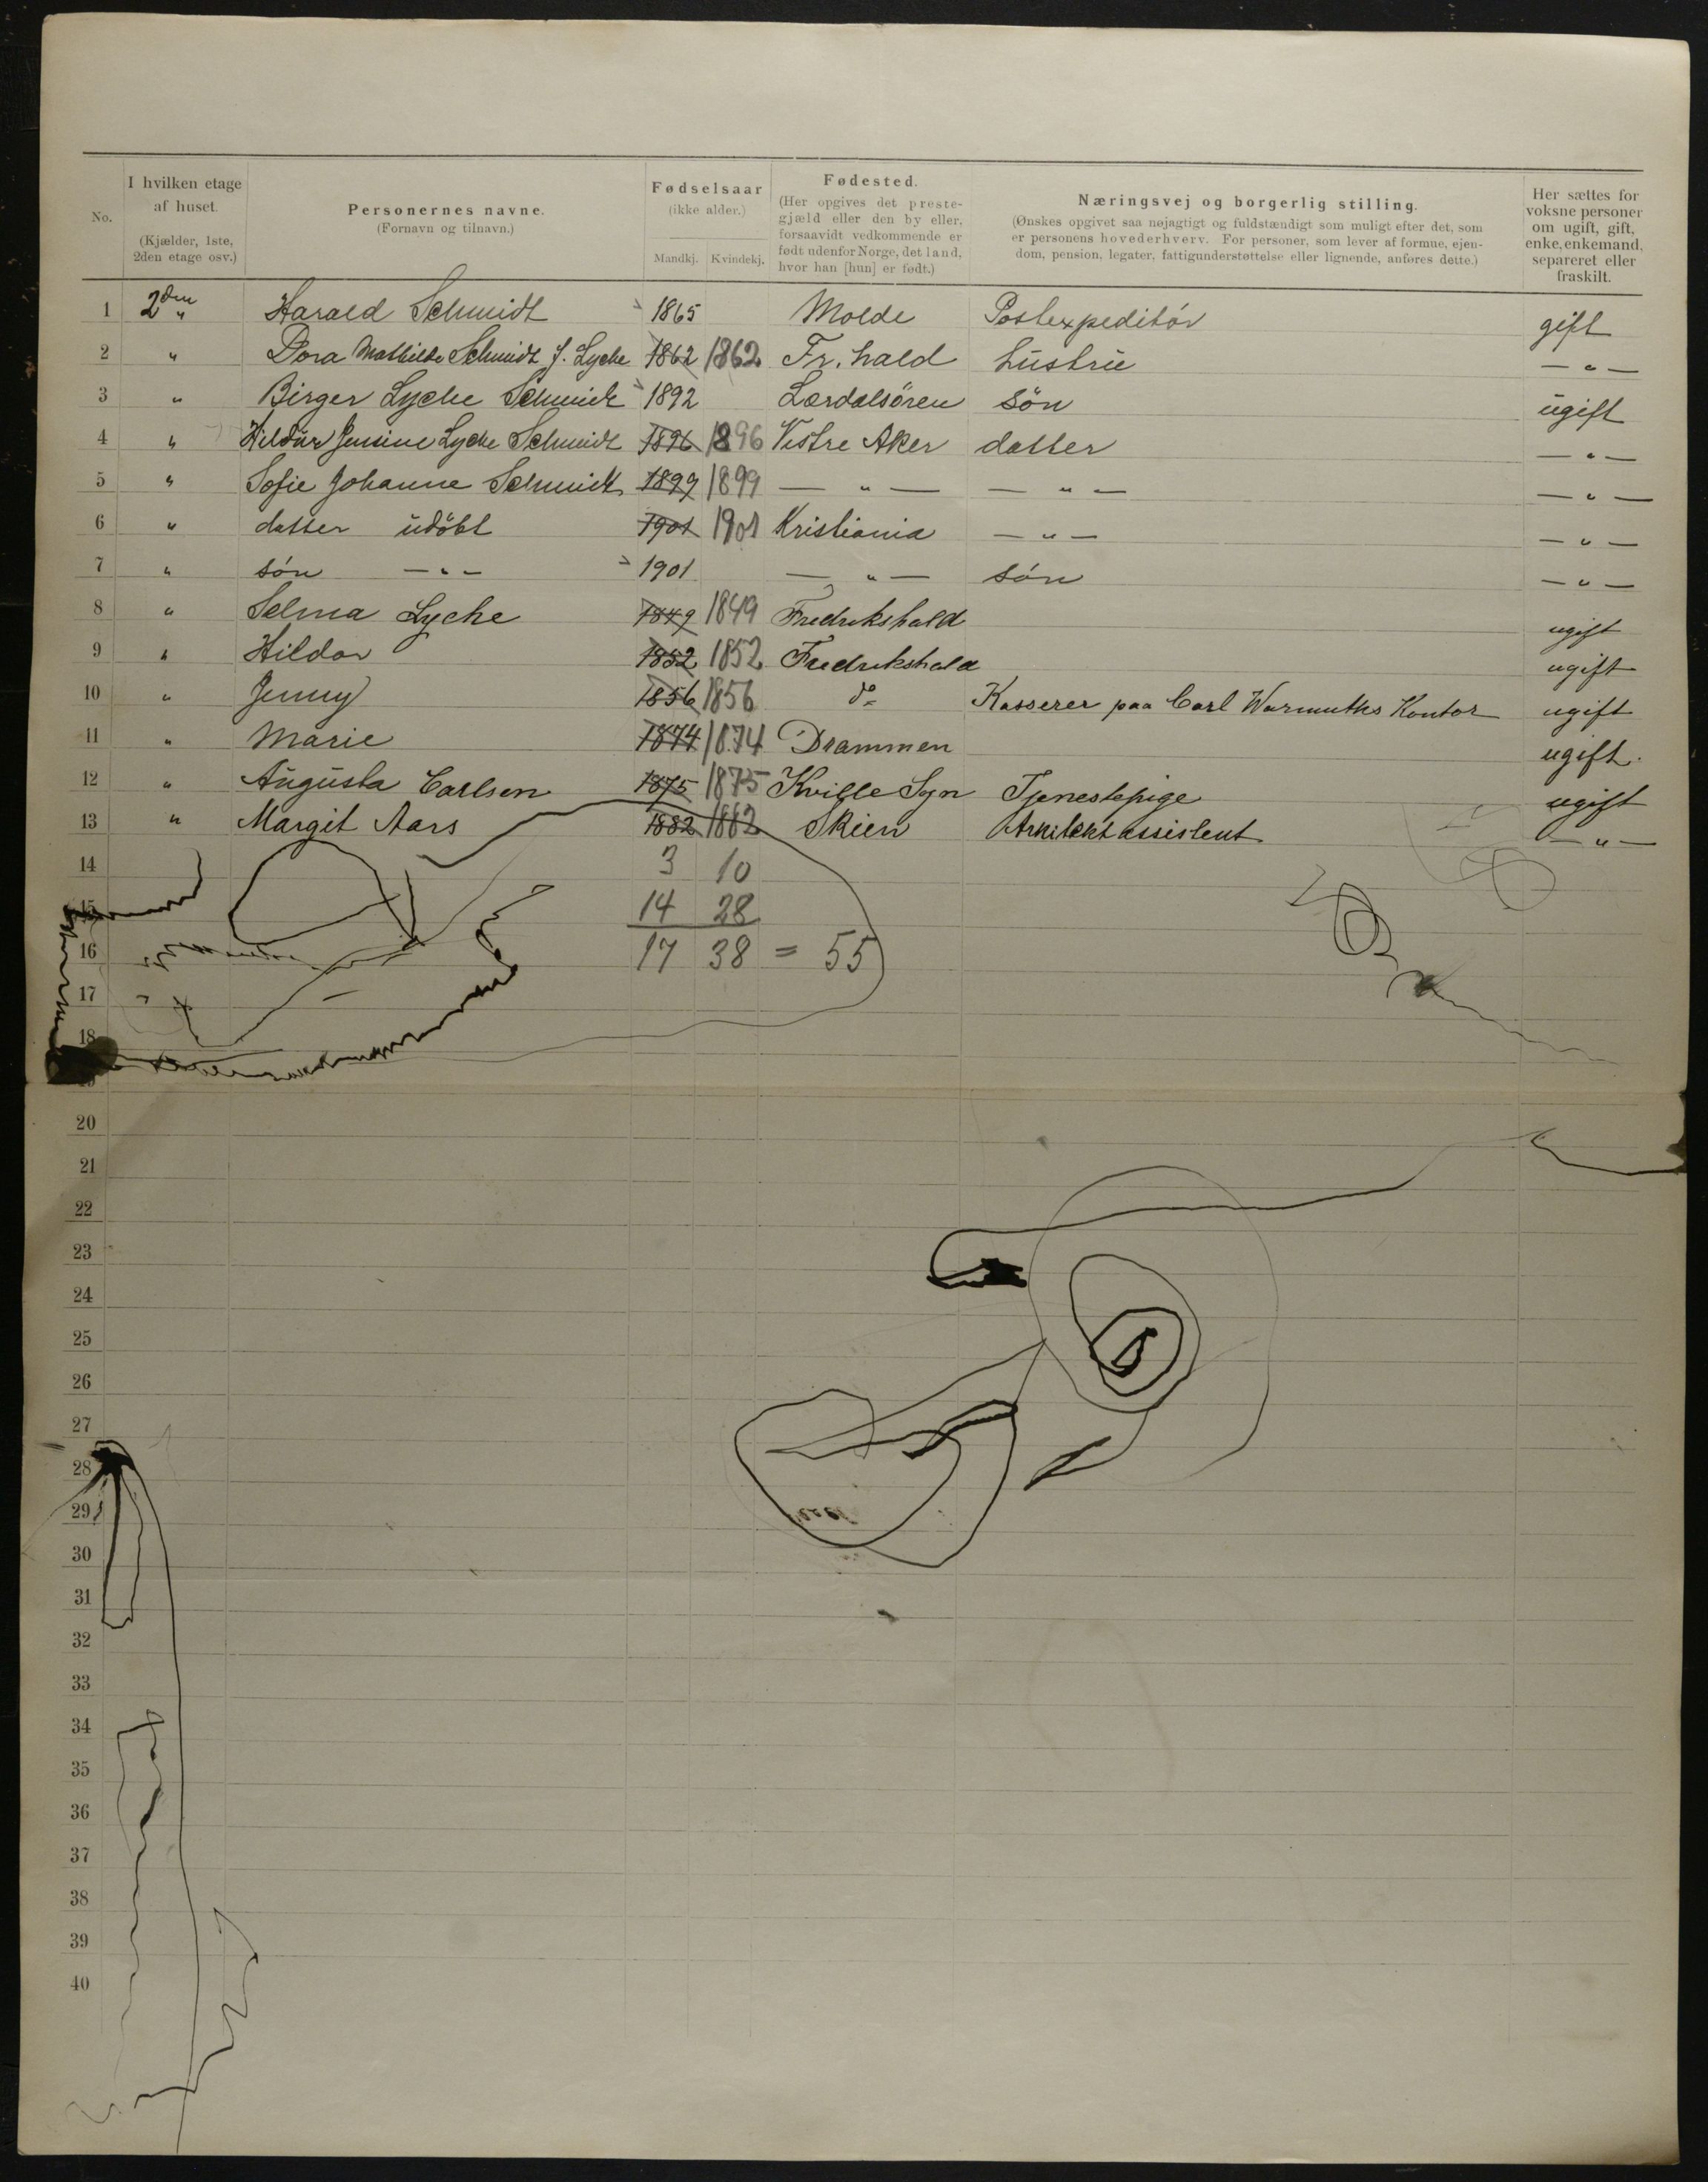 No.
I hvilken etage
af huset.
(Kjælder, 1ste,
2den etage osv.)
Personernes navne.
(Fornavn og tilnavn.)
Fødselsaar
(ikke alder.)
Mandkj. Kvindekj.
Fødested.
(Her opgives det preste-
gjæld eller den by eller,
forsaavidt vedkommende er
født udenfor Norge, det land,
hvor han [hun] er født.)
Næringsvej og borgerlig stilling.
(Ønskes opgivet saa nøjagtigt og fuldstændigt som muligt efter det, som
er personens hovederhverv. For personer, som lever af formue, ejen-
dom, pension, legater, fattigunderstøttelse eller lignende, anføres dette.)
Her sættes for
voksne personer
om ugift, gift,
enke, enkemand,
separeret eller
fraskilt.
1 2den " Harald Schmidt 1865 Molde Postexpeditór gift
2 " Dora Mathilde Schmidt f. Lyche 1862 1862 Fr. hald hustru — " —
3 " Birger Lyche Schmidt 1892 Lærdalsören sön ugift
4 " Hildur Jensine Lyche Schmidt 1896 1896 Vestre Aker datter — " —
5 " Sofie Johanne Schmidt 1899 1899 — " — — " — — " —
6 " datter udöbt 1901 1901 Kristiania — " — — " —
7 " són — " — 1901 — " — són — " —
8 " Selma Lyche 1849 1849 Fredrikshald ugift
9 " Hildar 1852 1852 Fredrikshald ugift
10 " Jenny 1856 1856 do Kasserer paa Carl Warmuths Kontor ugift
11 " Marie 1874 1874 Drammen ugift.
12 " Augusta Carlsen 1875 1875 Kville Sgn Tjenestepige ugift
13 " Margit Aars 1882 1882 Skien Arkitektassistent — " —
14 3 10
15 14 28
16 17 38 = 55
17
18
19
20
21
22
23
24
25
26
27
28
29
30
31
32
33
34
35
36
37
38
39
40